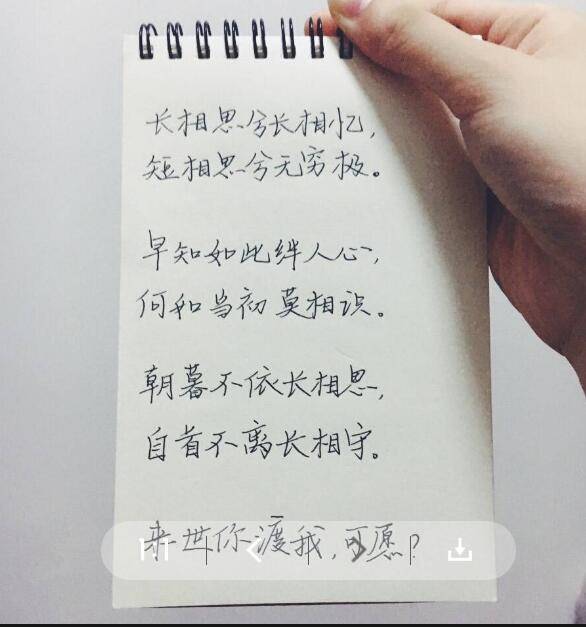 长相思兮长相忆,
短相思兮无穷极。
早知如此绊人心,
何如当初莫相识。
朝暮不依长相思,
白首不离长相守。
来世你渡我,可愿?